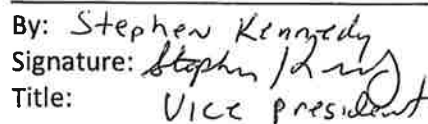 By: Stephen Kennedy
Signature: Stephen
Title: Vice President